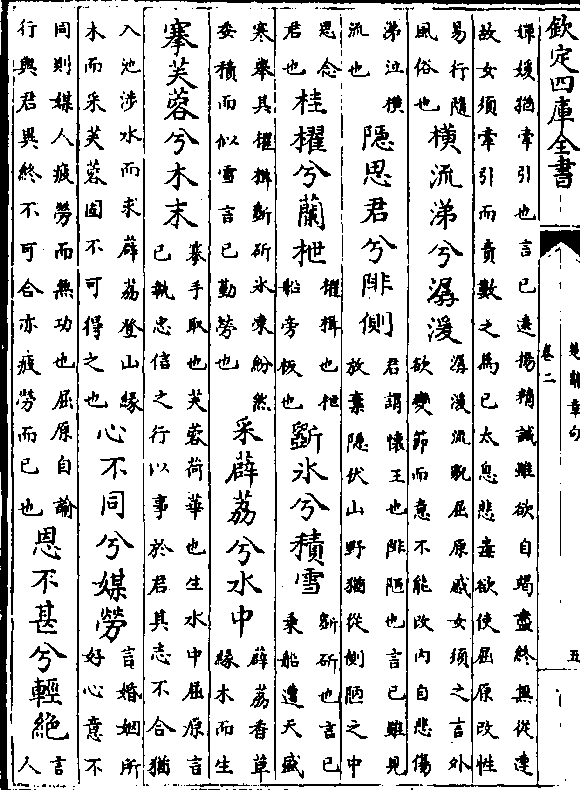 欽定四庫全書
楚辭章句
卷二
五
嬋媛猶牽引也言已遠揚精誠雖欲自竭盡終無從達
故女須牽引而責數之為已太息悲毒欲使屈原改性
易行隨
風俗也
橫流涕兮潺湲
潺湲流貌屈原感女須之言外
欲變節而意不能改内自悲傷
涕泣橫
流也
隱思君兮陫側
君謂懷王也陫陋也言已雖見
放棄隱伏山野猶從側陋之中
思念
君也
桂櫂兮蘭枻
櫂楫也枻
船旁板也
斲氷兮積雪
斲斫也言已
乘船遭天盛
寒舉其櫂楫斲斫氷凍紛然
委積而似雪言已勤勞也
采薜荔兮水中
薜荔香草
緣木而生
搴芙蓉兮木末
搴手取也芙蓉荷華也生水中屈原言
已執忠信之行以事於君其志不合猶
入池涉水而求薜荔登山緣
木而采芙蓉固不可得之也
心不同兮媒勞
言婚姻所
好心意不
同則媒人疲勞而無功也屈原自諭
行與君異終不可合亦疲勞而已也
恩不甚兮輕絶
言
人